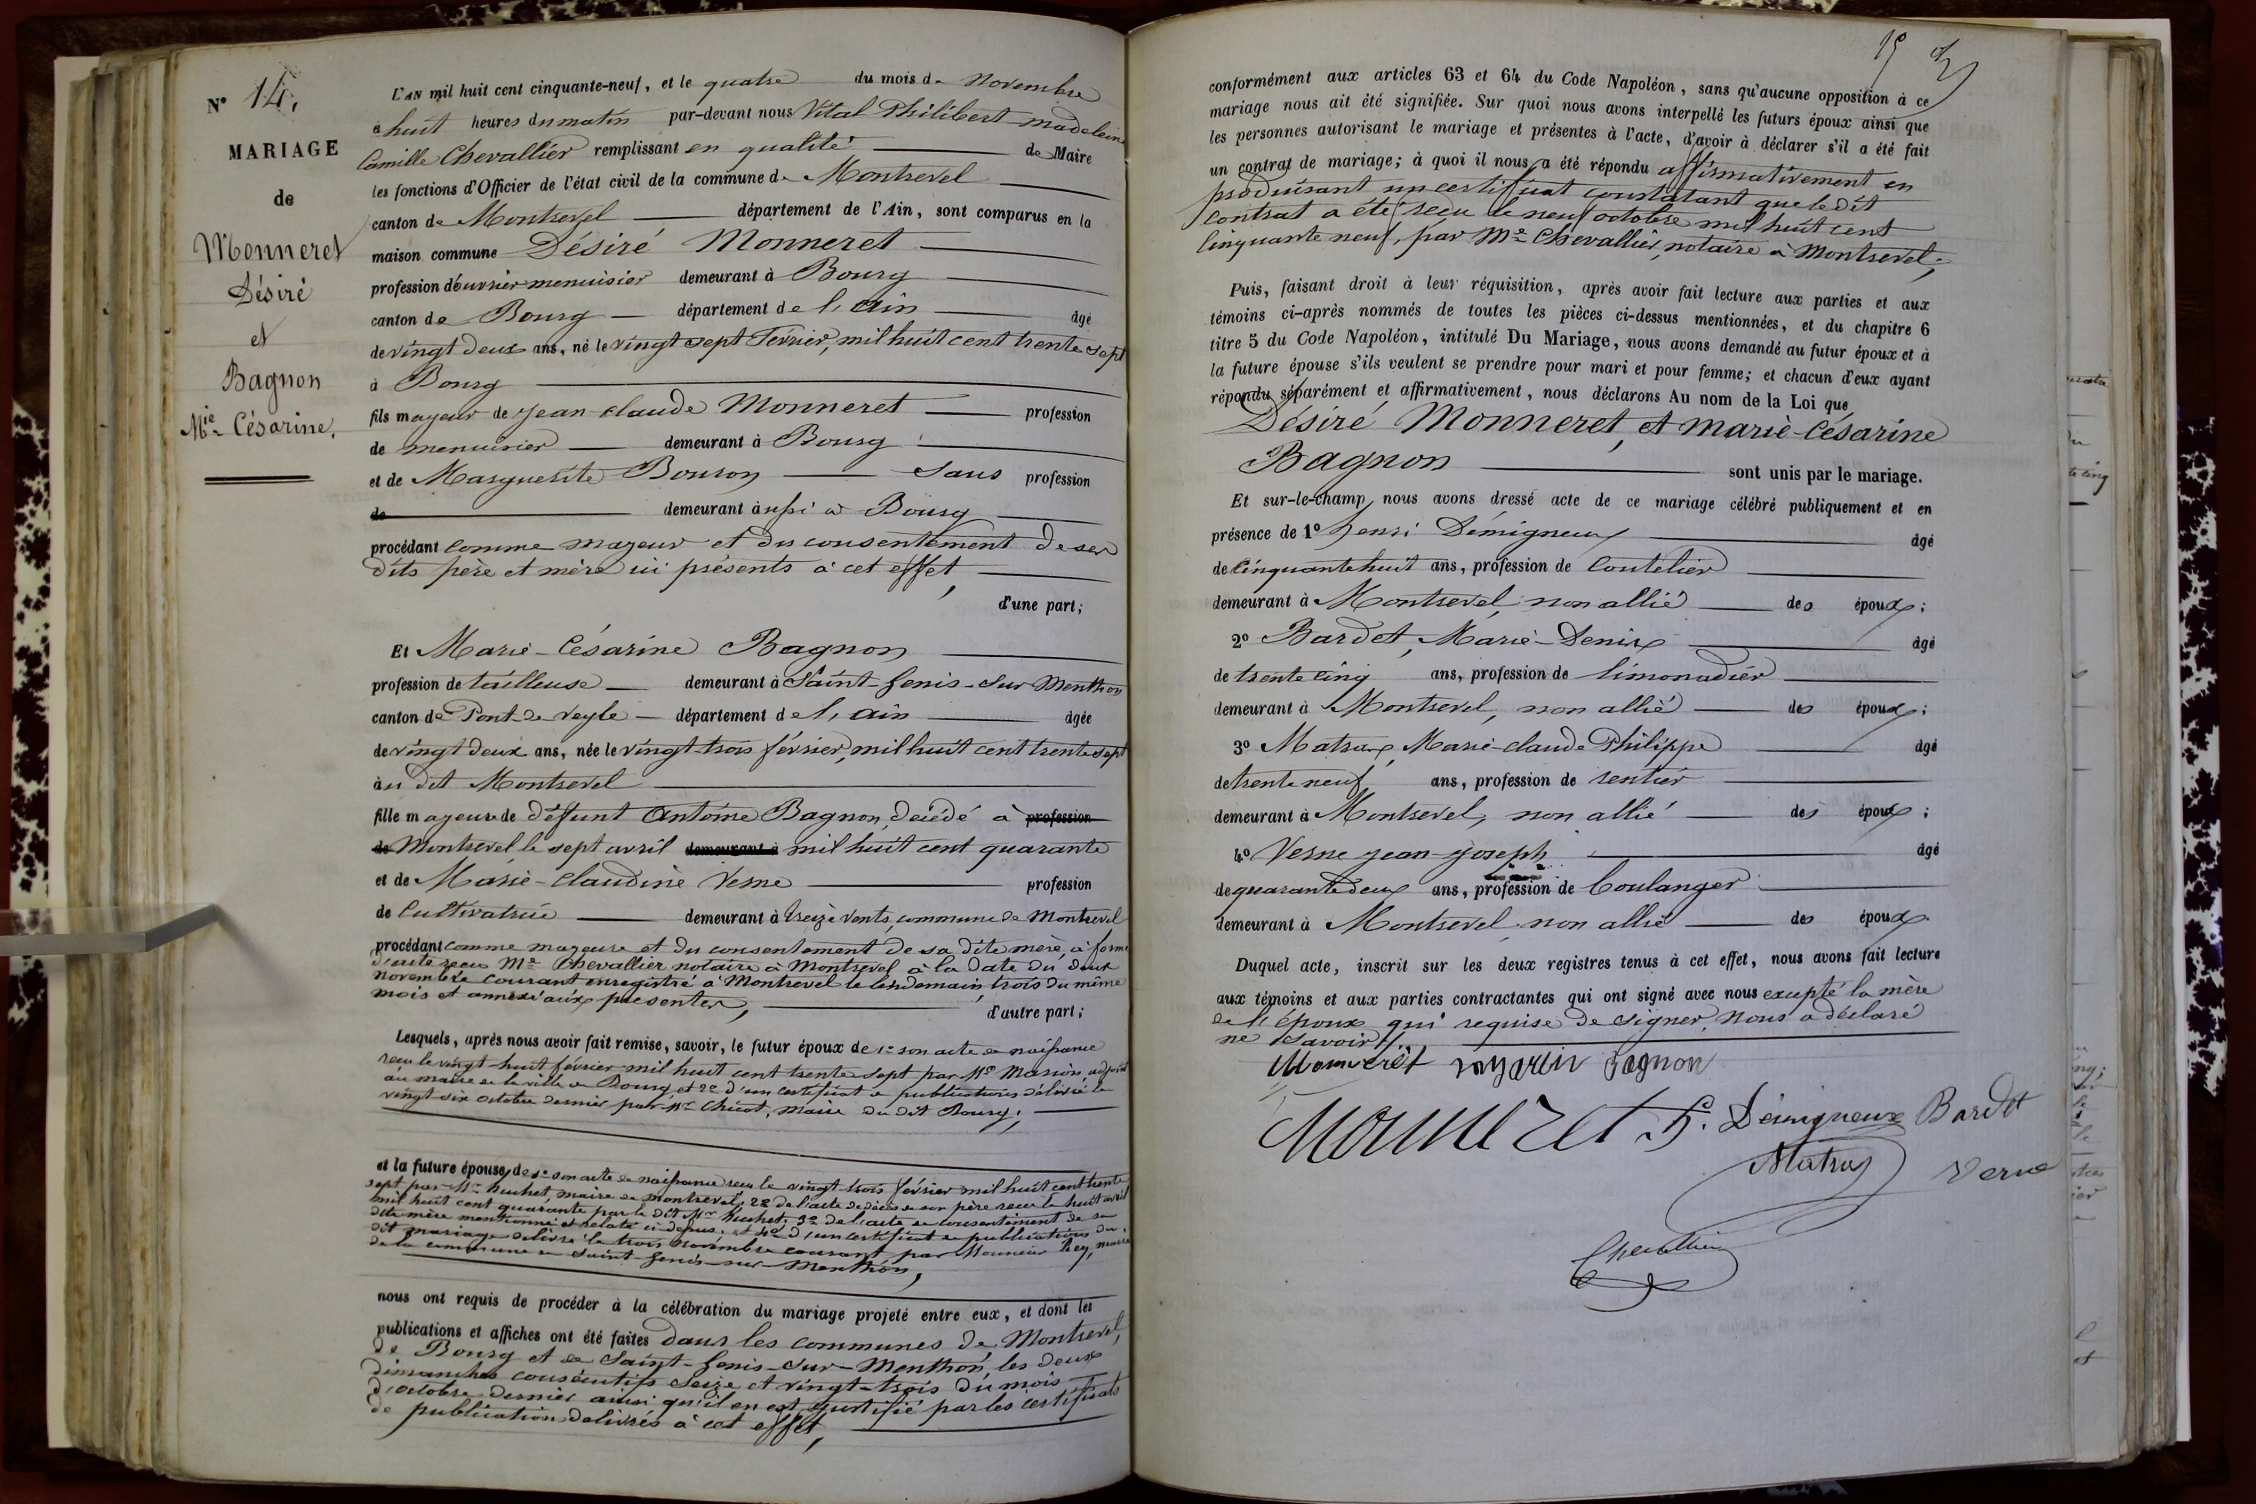 N° 14.
MARIAGE
de
Monneret
Désiré
et
Bagnon
Mie Césarine.
L'AN mil huit cent cinquante-neuf, et le quatre du mois de Novembre
à huit heures du matin par-devant nous Vital Philibert Madeleine
Camille Chevallier remplissant en qualité de Maire
les fonctions d'Officier de l'état civil de la commune de Montrevel
canton de Montrevel département de l'Ain, sont comparus en la
maison commune Désiré Monneret
profession d'ouvrier menuisier demeurant à Bourg
canton de Bourg département de l'ain âgé
de vingt deux ans, né le vingt sept Février, mil huit cent trente sept
à Bourg
fils mayeur de Jean Claude Monneret profession
de menuisier demeurant à Bourg
et de Marguerite Bouron Sans profession
de demeurant aussi à Bourg
procédant comme mayeur et du consentement de ses
dits père et mère ici présents à cet effet,
d'une part;
Et Marie-Césarine Bagnon
profession de tailleuse demeurant à Saint-Genis-sur Menthon
canton de Pont-de Veyle département de l'ain âgée
de vingt deux ans, née le vingt-trois février, mil huit cent trente sept
au dit Montrevel
fille mayeure de défunt Antoine Bagnon, décédé à profession
de Montrevel le sept avril demeurant à mil huit cent quarante
et de Marie-Claudine Verne profession
de Cultivatrice demeurant à treize vents, commune de Montrevel
procédant comme mayeure et du consentement de sa dite mère, à forme
d'acte reçu Me Chevallier notaire à Montrevel à la date du deux
novembre courant enregistré à Montrevel le lendemain, trois du même
mois et annexé aux présentes,
d'autre part;
Lesquels, après nous avoir fait remise, savoir, le futur époux de 1° son acte de naissance
reçu le vingt huit février mil huit cent trente sept par Mr Marion adjoint
au maire de la ville de Bourg, et 2° d'un certificat de publications délivré le
vingt six octobre dernier par Mr Chicot, Maire du dit Bourg;
et la future épouse, de 1° son acte de naissance reçu le vingt trois février mil huit cent trente
sept par Mr huchet, maire de montrevel, 2° de l'acte de décès de son père reçu le huit avril
mil huit cent quarante par le dit Mr huchet, 3° de l'acte de consentement de sa
dite mère mentionné et relaté ci dessus, et 4° d'un certificat de publications du
dit mariage délivré le trois novembre courant par Monsieur hey, maire
de la commune de Saint-Genis-sur-Menthon,
nous ont requis de procéder à la célébration du mariage projeté entre eux, et dont les
publications et affiches ont été faites dans les communes de Montrevel,
de Bourg et de Saint-Genis-sur-Menthon, les deux
dimanches consécutifs seize et vingt-trois du mois
d'octobre dernier ainsi qu'il en est justifié par les certificats
de publication délivrés à cet effet,
15
conformément aux articles 63 et 64 du Code Napoléon, sans qu'aucune opposition à ce
mariage nous ait été signifiée. Sur quoi nous avons interpellé les futurs époux ainsi que
les personnes autorisant le mariage et présentes à l'acte, d'avoir à déclarer s'il a été fait
un contrat de mariage; à quoi il nous a été répondu affirmativement en
produisant un certificat constatant que le dit
contrat a été reçu le neuf octobre mil huit cent
cinquante neuf, par Me Chevallier, notaire à Montrevel;
Puis, faisant droit à leur réquisition, après avoir fait lecture aux parties et aux
témoins ci-après nommés de toutes les pièces ci-dessus mentionnées, et du chapitre 6
titre 5 du Code Napoléon, intitulé Du Mariage, nous avons demandé au futur époux et à
la future épouse s'ils veulent se prendre pour mari et pour femme; et chacun d'eux ayant
répondu séparément et affirmativement, nous déclarons Au nom de la Loi que
Désiré Monneret, et Marie-Césarine
Bagnon sont unis par le mariage.
Et sur-le-champ nous avons dressé acte de ce mariage célébré publiquement et en
présence de 1° henri Démigneux âgé
de Cinquante huit ans, profession de Coutelier
demeurant à Montrevel, non allié des époux;
2° Bardet, Marie-Denis âgé
de trente cinq ans, profession de limonadier
demeurant à Montrevel, non allié des époux;
3° Matras, Marie-Claude Philippe âgé
de trente neuf ans, profession de rentier
demeurant à Montrevel, non allié des époux;
4° Verne Jean-Joseph âgé
de quarante deux ans, profession de boulanger
demeurant à Montrevel non allié des époux
Duquel acte, inscrit sur les deux registres tenus à cet effet, nous avons fait lecture
aux témoins et aux parties contractantes qui ont signé avec nous excepté la mère
de l'époux qui requise de signer, nous a déclaré
ne savoir.
Monneret Bagnon
Monneret h. Démigneux Bardet
Matras Verne
Chevallier